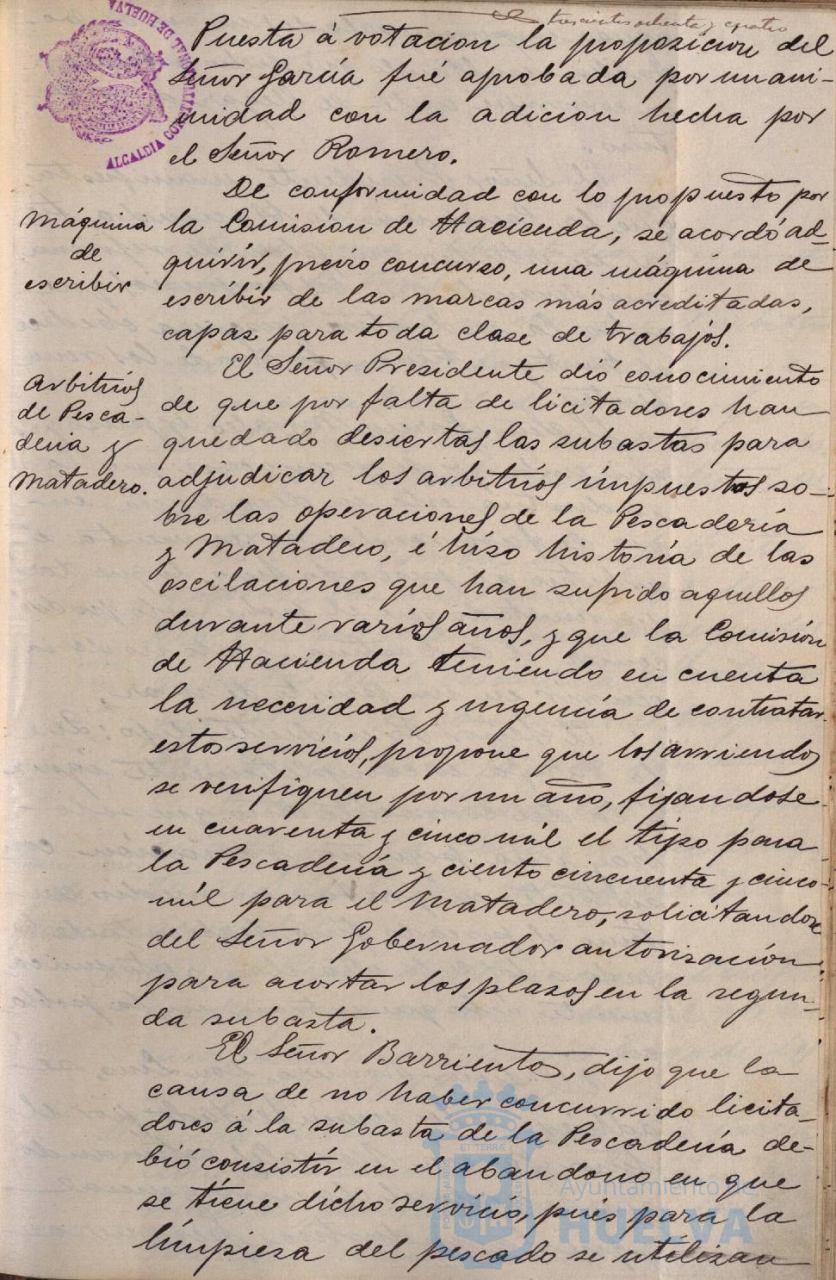 trescientos ochenta y cuatro
Puesta á votacion la proposicion del
Señor García fué aprobada por unani-
midad con la adicion hecha por
el Señor Romero.
De conformidad con lo propuesto por
Máquina
de
escribir
la Comision de Hacienda, se acordó ad-
quirir, previo concurso, una máquina de
escribir de las marcas más acreditadas,
capaz para toda clase de trabajos.
Arbitrios
de Pesca-
deria y
Matadero.
El Señor Presidente dió conocimiento
de que por falta de licitadores han
quedado desiertas las subastas para
adjudicar los arbitrios impuestos so-
bre las operaciones de la Pescadería
y Matadero, é hizo historia de las
oscilaciones que han sufrido aquellos
durante varios años, y que la Comisión
de Hacienda teniendo en cuenta
la necesidad y urgencia de contratar
estos servicios, propone que los arriendos
se verifiquen por un año, fijandose
en cuarenta y cinco mil el tipo para
la Pescadería y ciento cincuenta y cinco
mil para el Matadero, solicitandose
del Señor Gobernador autorización
para acortar los plazos en la segun-
da subasta.
El Señor Barrientos, dijo que la
causa de no haber concurrido licita-
dores á la subasta de la Pescadería de-
bió consistir en el abandono en que
se tiene dicho servicio, pues para la
limpieza del pescado se utilizan
ALCALDIA CONSTITUCIONAL DE HUELVA
Ayuntamiento de
HUELVA